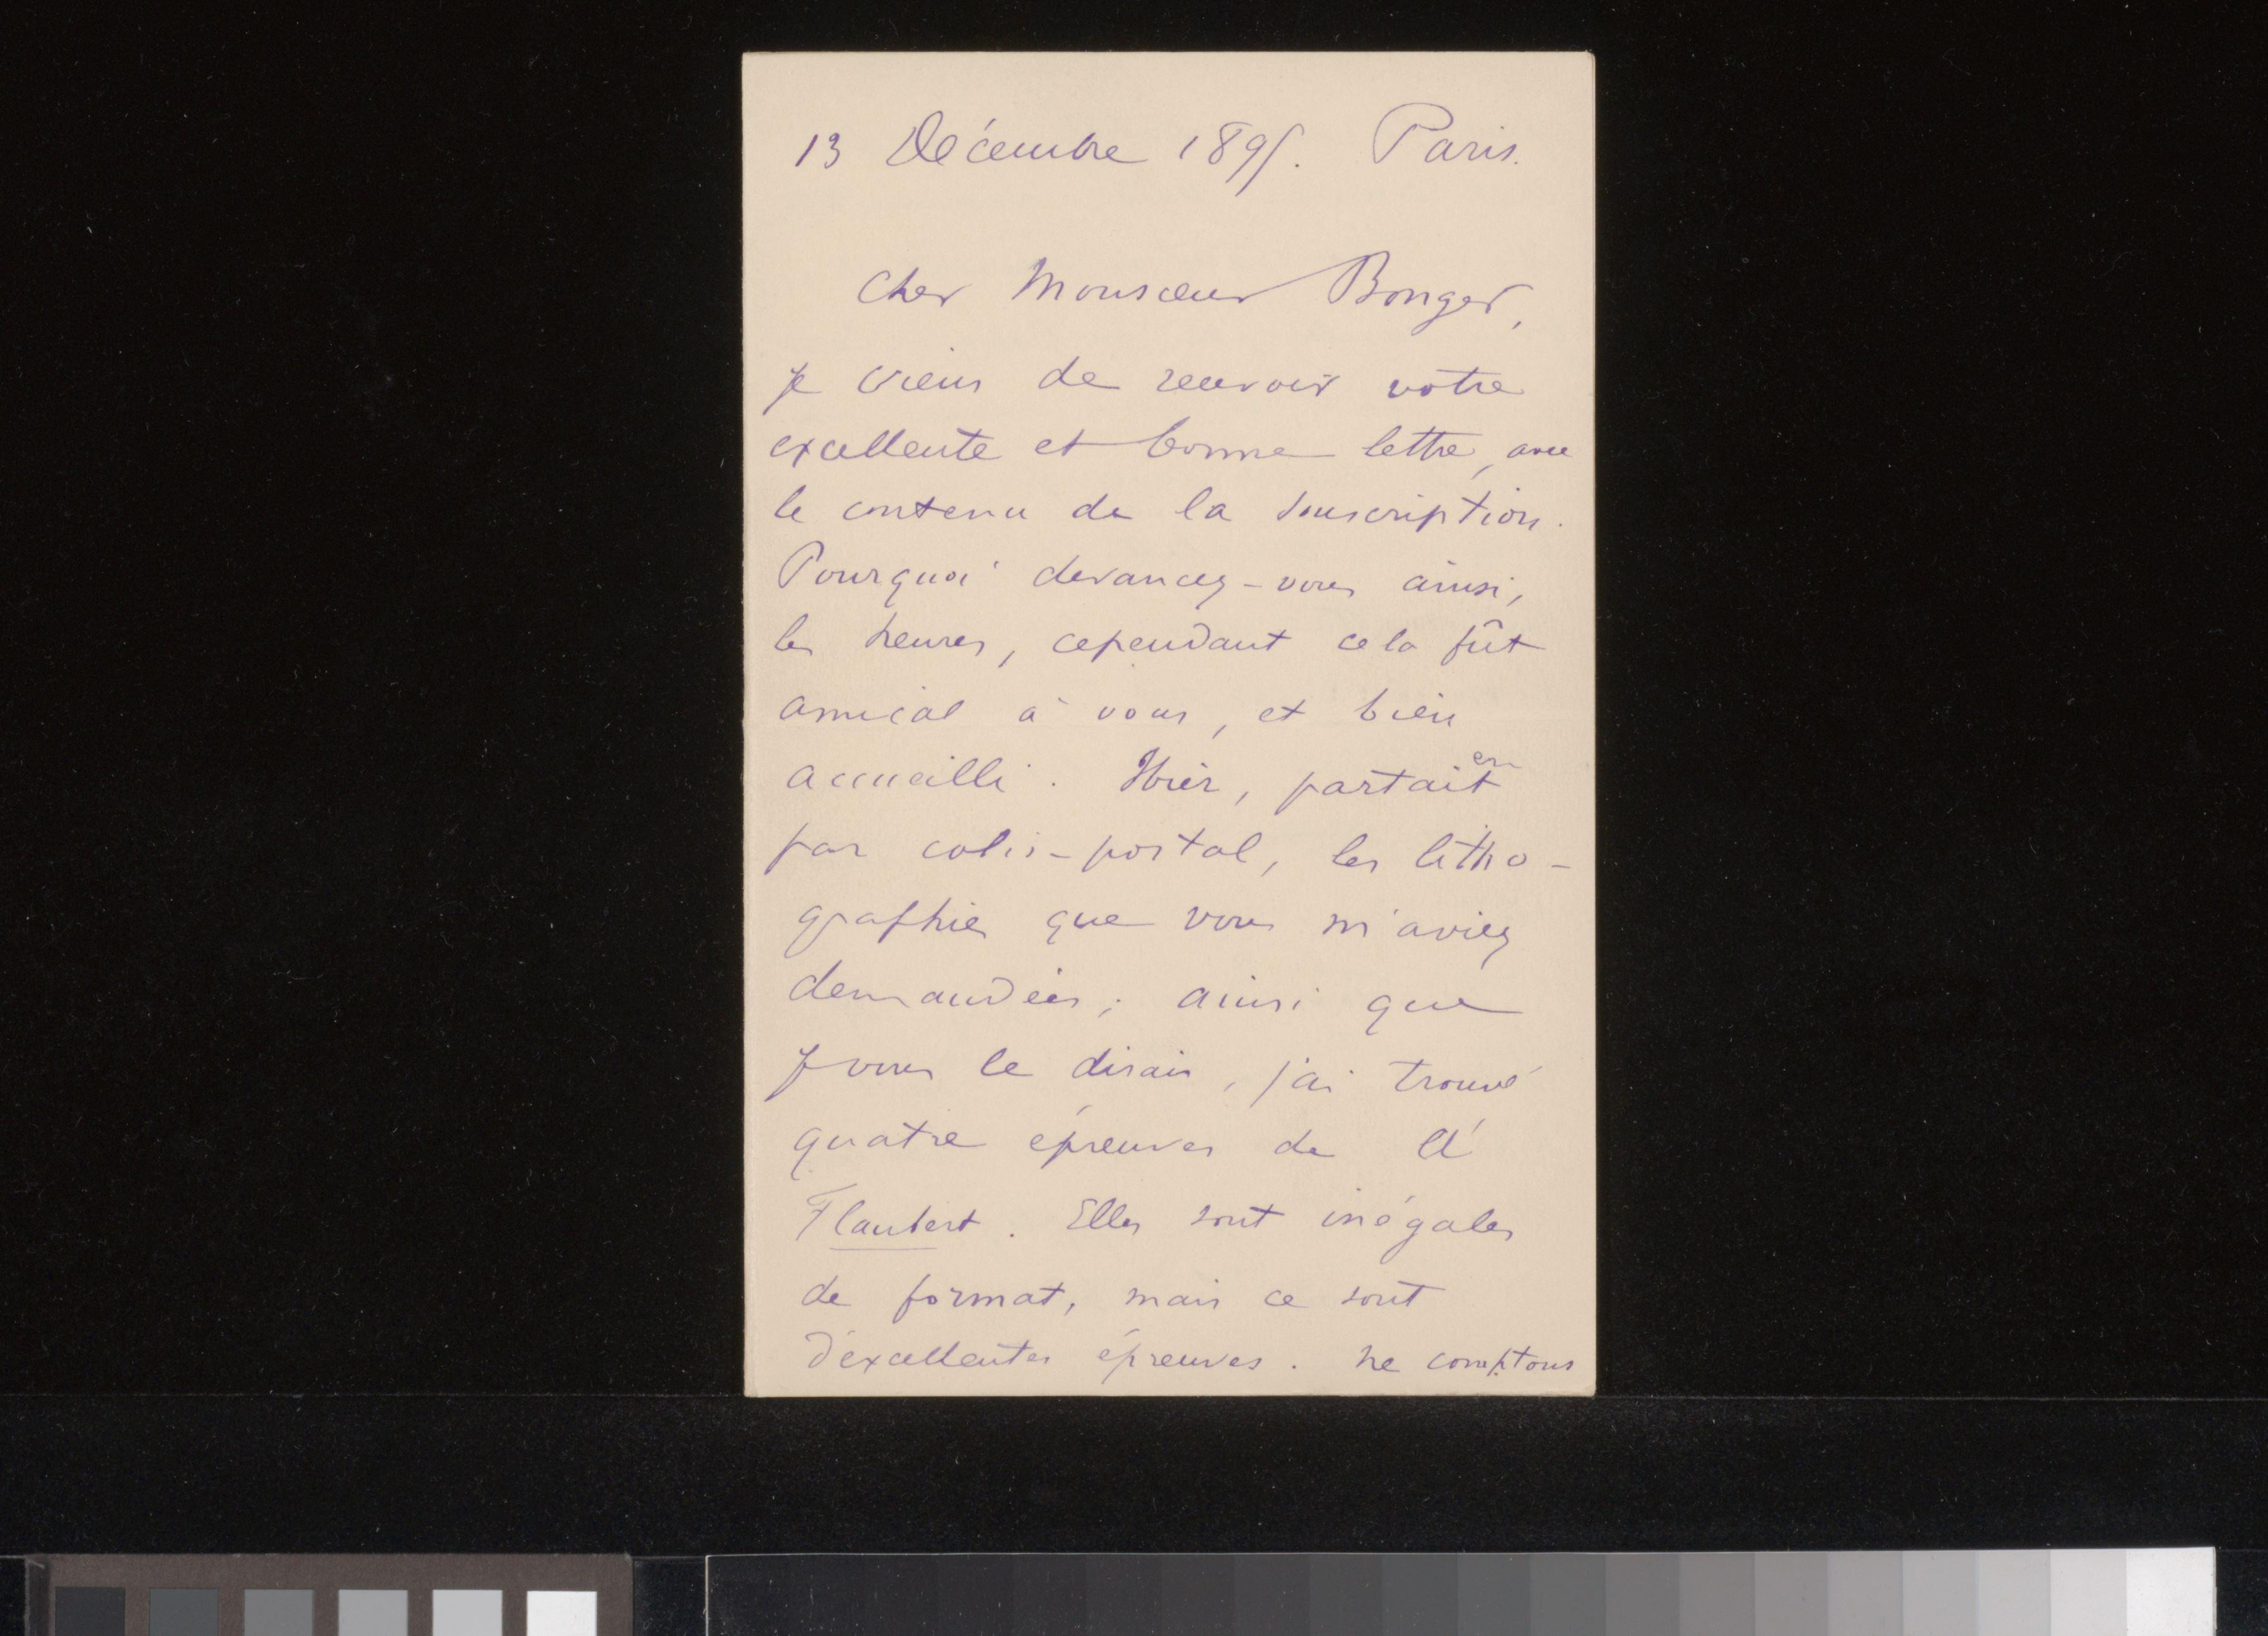 13 Décembre 1895. Paris.
Cher Monsieur Bonger,
Je viens de recevoir votre
excellente et bonne lettre, avec
le contenu de la souscription.
Pourquoi devancez-vous ainsi,
les heures, cependant cela fût
amical à vous, et bien
accueilli. Hier, partait en
par colis-postal, les litho-
graphies que vous m'aviez
demandées; ainsi que
je vous le disais, j'ai trouvé
quatre épreuves de A
Flaubert. Elles sont inégales
de format, mais ce sont
d'excellentes épreuves. Ne comptons